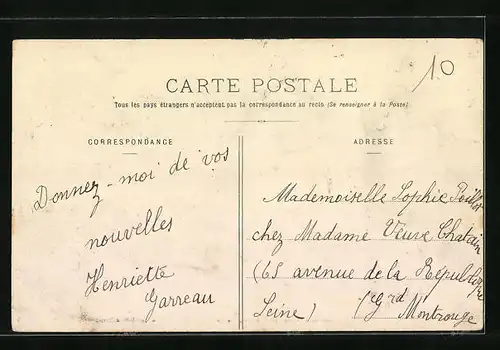 10
CARTE POSTALE
Tous les pays étrangers n'acceptent pas la correspondance au recto (Se renseigner à la Poste)
CORRESPONDANCE
Donnez-moi de vos
nouvelles
Henriette
Garreau
ADRESSE
Mademoiselle Sophie
chez Madame Veuve Chatain
(65 avenue de la République
Seine) (Grd Montrouge